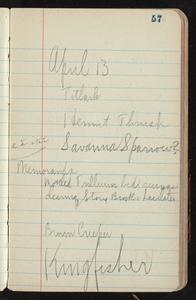 57
April 13
Titlark
Hermit Thrush
Savanna Sparrow?
Memoranda
noted Trilliums
Stony Brook
Brown Creeper
Kingfisher